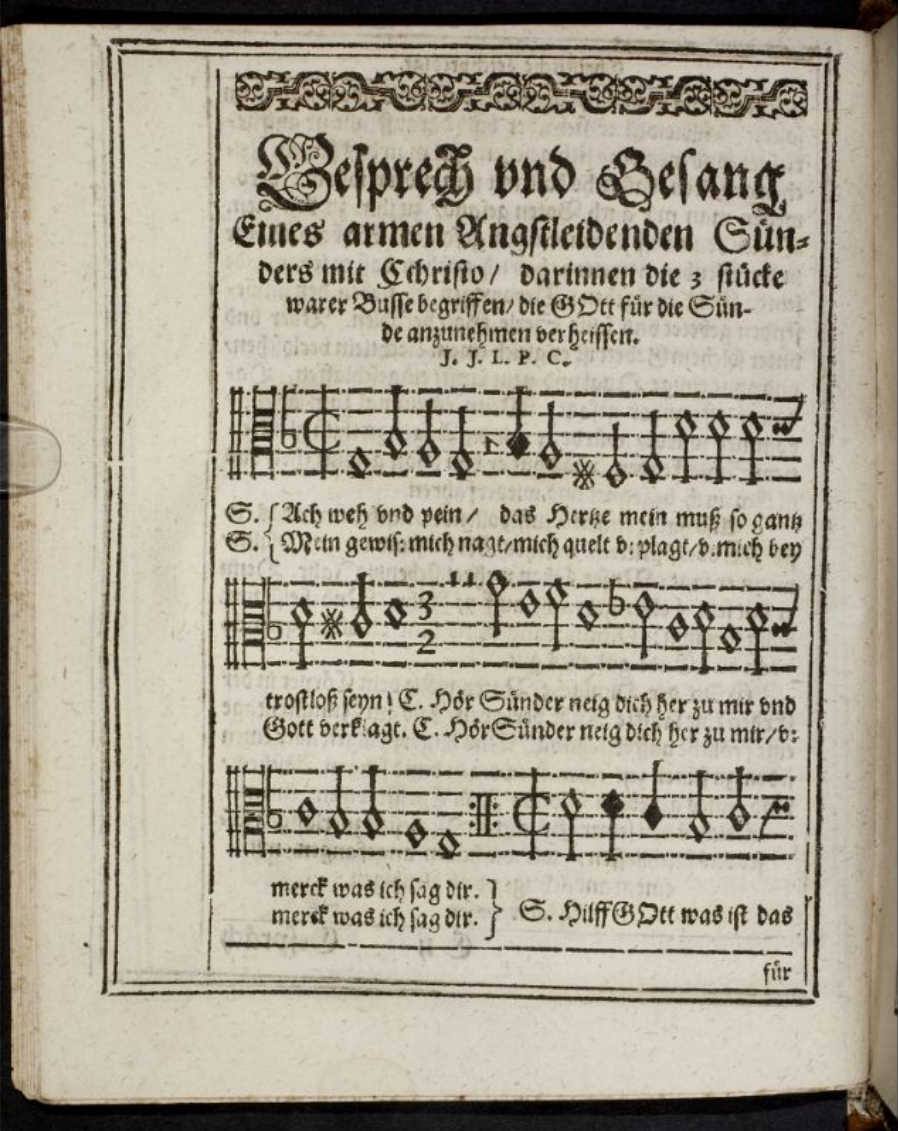 Gesprech vnd Gesang
Eines armen Angstleidenden Sün-
ders mit Cchristo / darinnen die 3 stücke
warer Busse begriffen / die GOtt für die Sün-
de anzunehmen verheissen.
J. J. L. P. C.
S. { Ach weh vnd pein / das Hertze mein muß so gantz
S. { Mein gewis: mich nagt / mich quelt v: plagt / v: mich bey
3
2
trostloß seyn! C. Hör Sünder neig dich her zu mir vnd
Gott verklagt. C. Hör Sünder neig dich her zu mir / v:
merck was ich sag dir. }
merck was ich sag dir. } S. Hilff GOtt was ist das
für